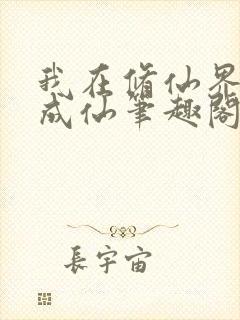 我在修仙界
成仙筆趣閣
長宇宙